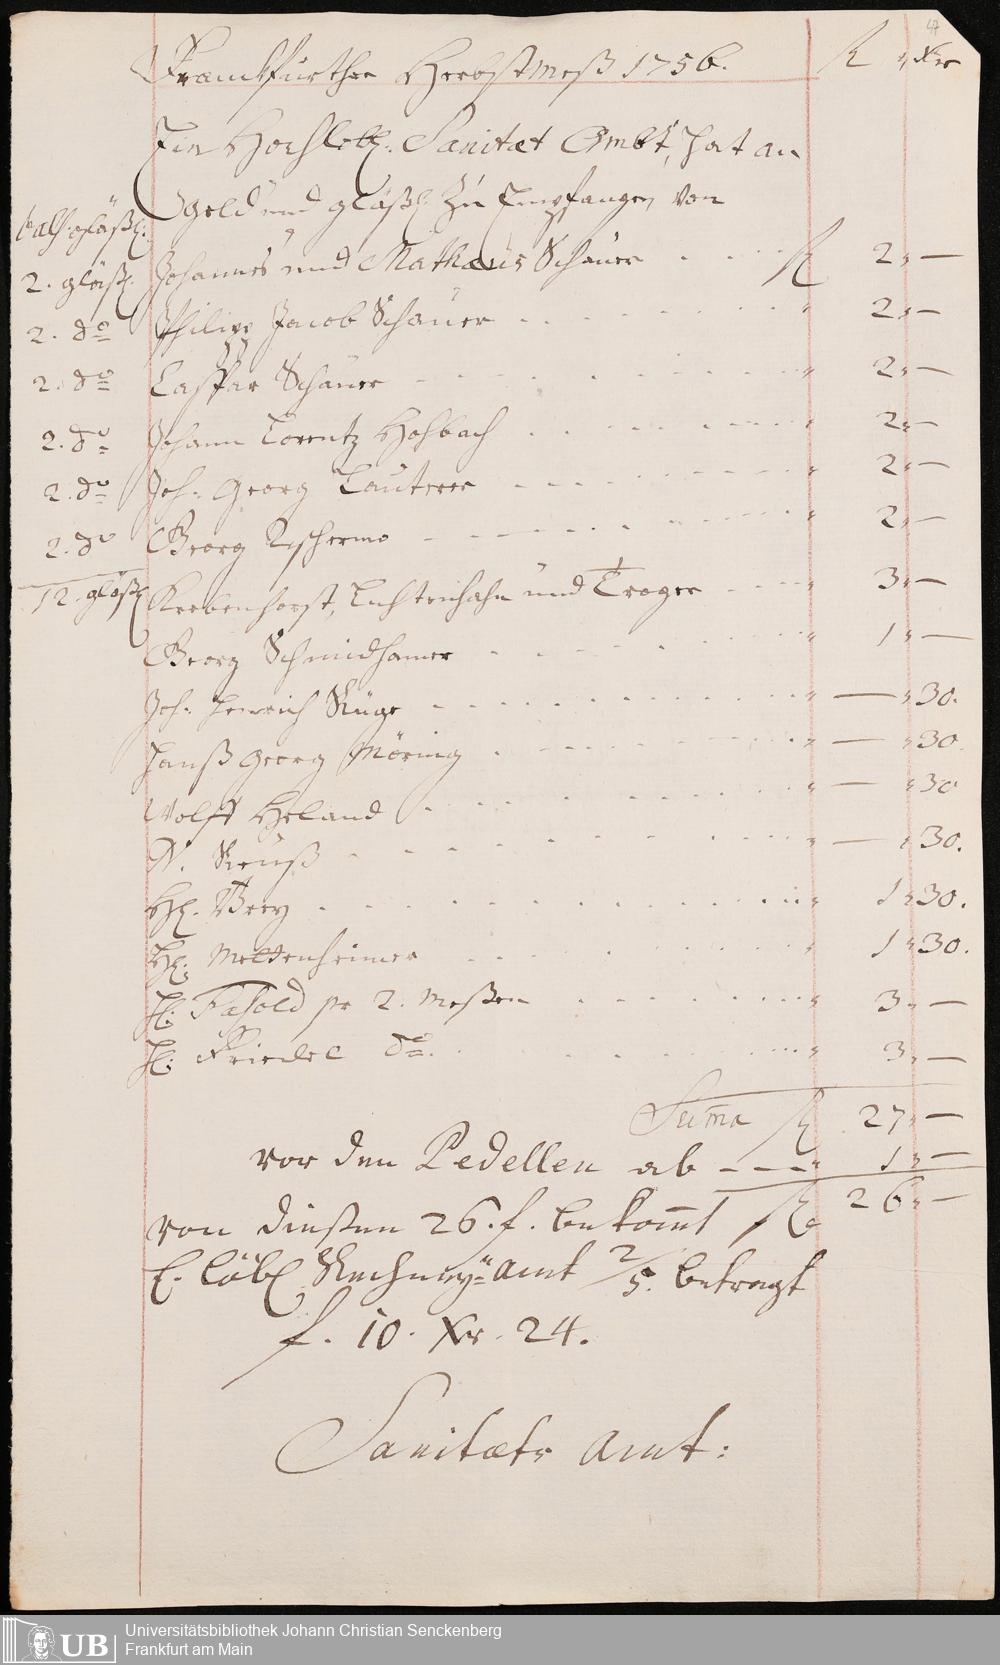 47
Franckfurther Herbstmeß 1756. R „ Xer
Ein Hochlobl: Sanitæt Ambt, hat an
Geld und gläßl: Zu Empfangen, von
balß: gläßl:
2. gläßl. Johannes und Mathæus Schauer . . . R 2„ —
2. do Philipp Jacob Schauer - - - - „ 2„ —
2. do Caspar Schauer - - - - „ 2„ —
2. do Johann Lorentz Hohbach . . . . „ 2„ —
2. do Joh: Georg Lauterer - - - - „ 2„ —
2. do Georg - - - - „ 2„ —
12. gläßl Krebenhorst, Lichtenhahn und Troger - - - „ 3„ —
Georg Schmidhamer - - - - „ 1„ —
Joh: Henrich Rüge - - - - „ — „ 30.
Hanß Georg Möring - - - - „ — „ 30
Wolff Heland - - - - „ — „ 30
N. Reuß - - - - „ — „ 30.
Hl. Brey - - - - „ 1„ 30.
Hl: Mettenheimer - - - - „ 1„ 30.
Hl: Fasold pr 2. Meßen - - - - „ 3„ —
Hl: Friedel do. - - - - „ 3„ —
Suma R 27„ —
vor den Pedellen ab - - - „ 1„ —
R 26„ —
von dießen 26. f. bekomt
E. löbl Rechney-amt 2/5. betragt
f. 10. Xr. 24.
Sanitæts Amt:
UB Universitätsbibliothek Johann Christian Senckenberg
Frankfurt am Main